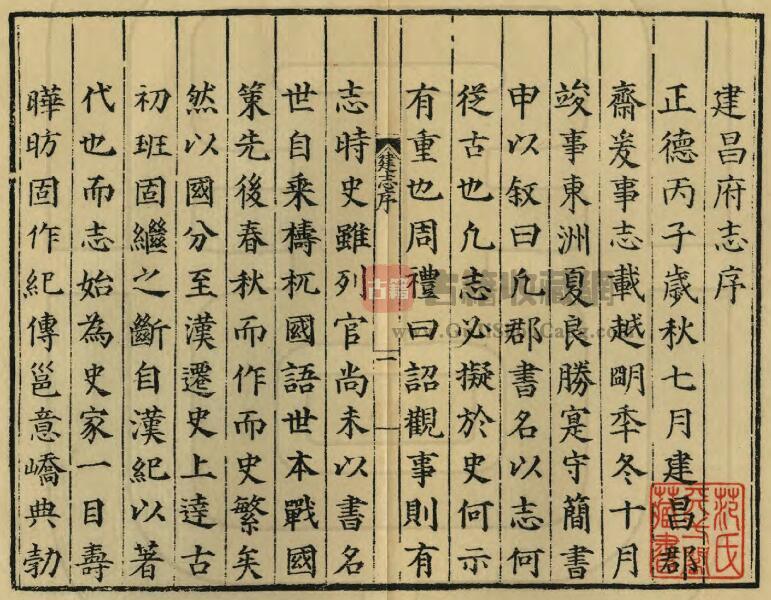 建昌府志序
正德丙子歲秋七月建昌郡
齋爰事志載越朙秊冬十月
竣事東洲夏良勝寔守簡書
申以叙曰凢郡書名以志何
從古也凢志必擬於史何示
有重也周禮曰詔觀事則有
建志序
一
志時史雖列官尚未以書名
世自乘檮杌國語世本戰國
策先後春秋而作而史繁矣
然以國分至漢遷史上逹古
初班固繼之斷自漢紀以著
代也而志始為史家一目壽
曄昉固作紀傳邕意嶠典勃
范氏
天一閣
藏書
古籍
古籍收藏網